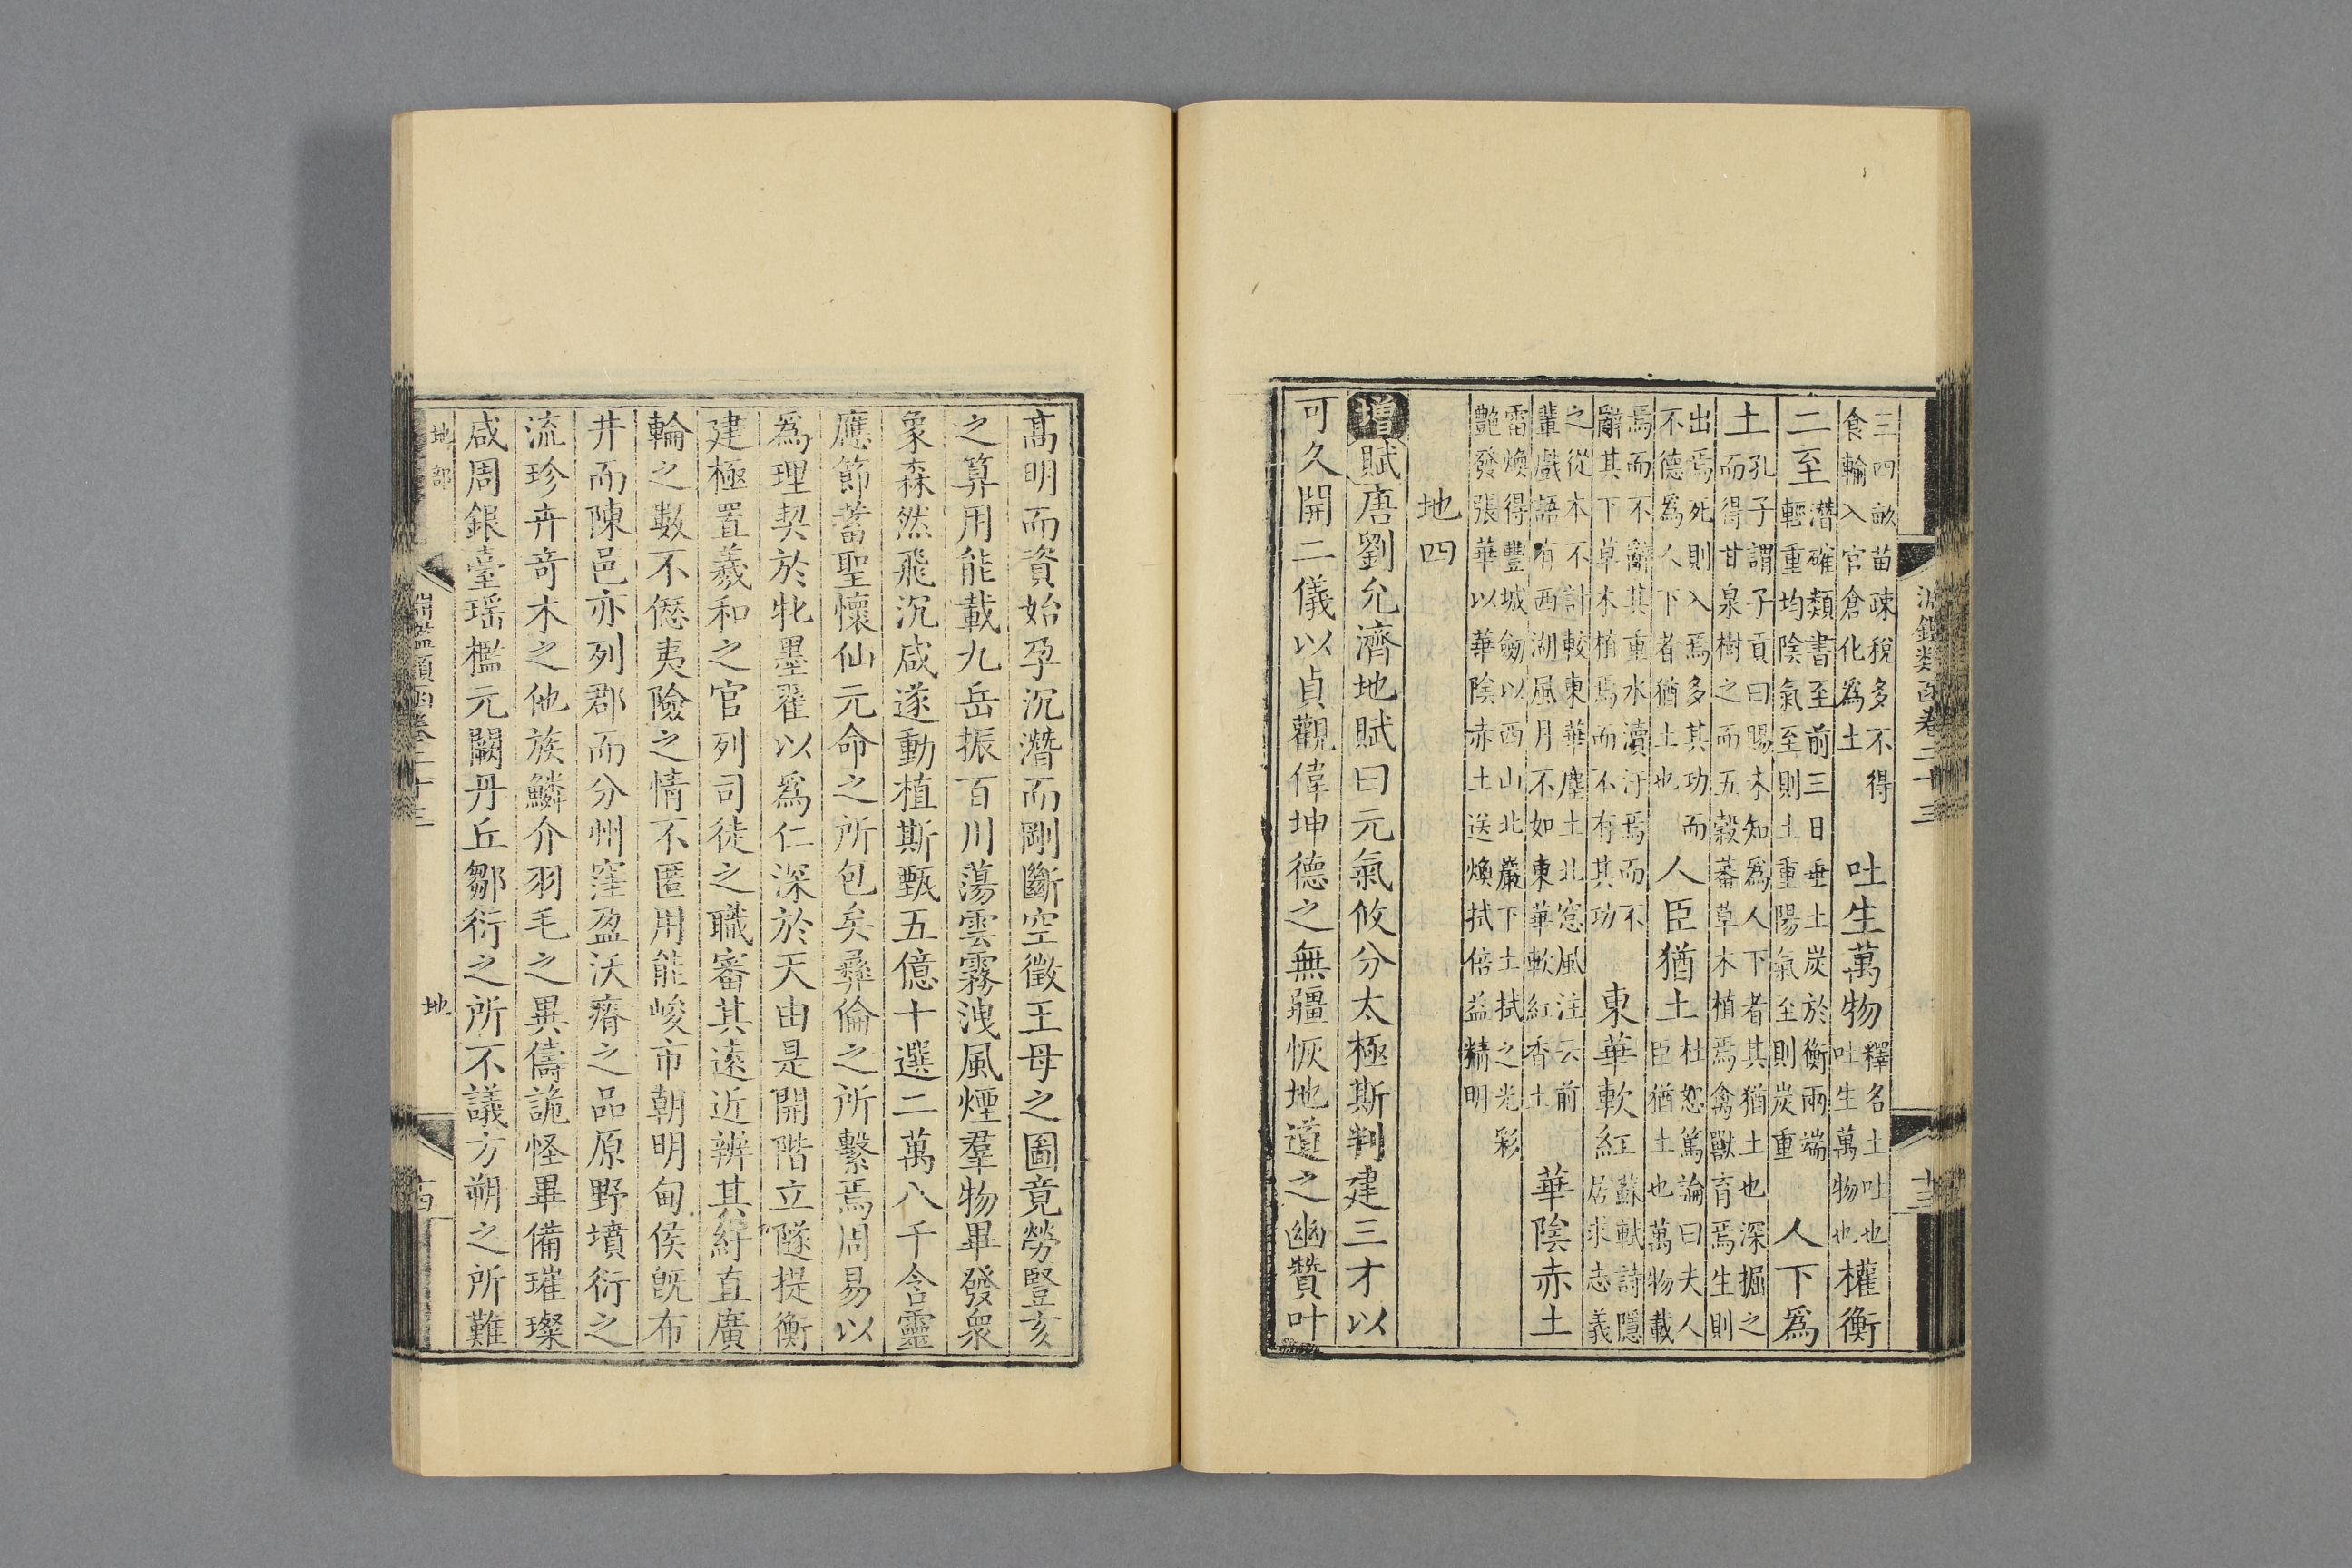 三四畝苗疎稅多不得
食輸入官倉化爲土
吐生萬物
釋名土吐也
吐生萬物也
權衡
二至
潛確類書至前三日垂土炭於衡兩端
輕重均陰氣至則土重陽氣至則炭重
人下爲
土
孔子謂子貢曰賜未知爲人下者其猶土也深掘之
而得甘泉樹之而五穀蕃草木植焉禽獸育焉生則
出焉死則入焉多其功而
不德爲人下者猶土也
人臣猶土
杜恕篤論曰夫人
臣猶土也萬物載
焉而不辭其重水瀆汙焉而不
辭其下草木植焉而不有其功
東華軟紅
蘇軾詩隱
居求志義
之從本不計較東華塵土北窓風注云前
輩戲語有西湖風月不如東華軟紅香土
華陰赤土
雷煥得豐城劒以西山北巖下土拭之光彩
艷發張華以華陰赤土送煥拭倍益精明
地四
增賦唐劉允濟地賦曰元氣攸分太極斯判建三才以
可久開二儀以貞觀偉坤德之無疆恢地道之幽贊叶
淵鑑類函卷二十三
十三
高明而資始孕沉潛而剛斷空徵王母之圖竟勞豎亥
之算用能載九岳振百川蕩雲霧洩風煙羣物畢發衆
象森然飛沉咸遂動植斯甄五億十選二萬八千含靈
應節蓄聖懷仙元命之所包矣彞倫之所繫焉周易以
爲理契於牝墨翟以爲仁深於天由是開階立隧提衡
建極置羲和之官列司徒之職審其遠近辨其紆直廣
輪之數不愆夷險之情不匿用能峻市朝明甸侯旣布
井而陳邑亦列郡而分州窪盈沃瘠之品原野墳衍之
流珍卉奇木之他族鱗介羽毛之異儔詭怪畢備璀璨
咸周銀臺瑶檻元闕丹丘鄒衍之所不議方朔之所難
地部
淵鑑類函卷二十三
地
十四